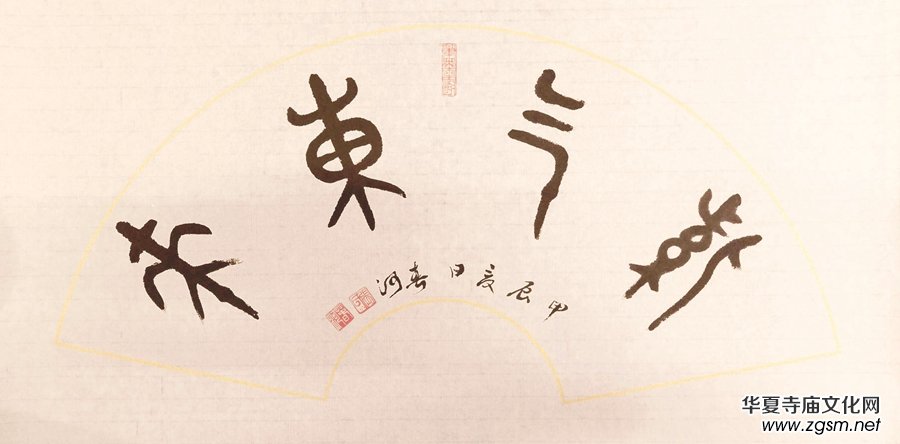 紫气東来
甲辰夏日春河
华夏寺庙文化网
www.zgsm.net